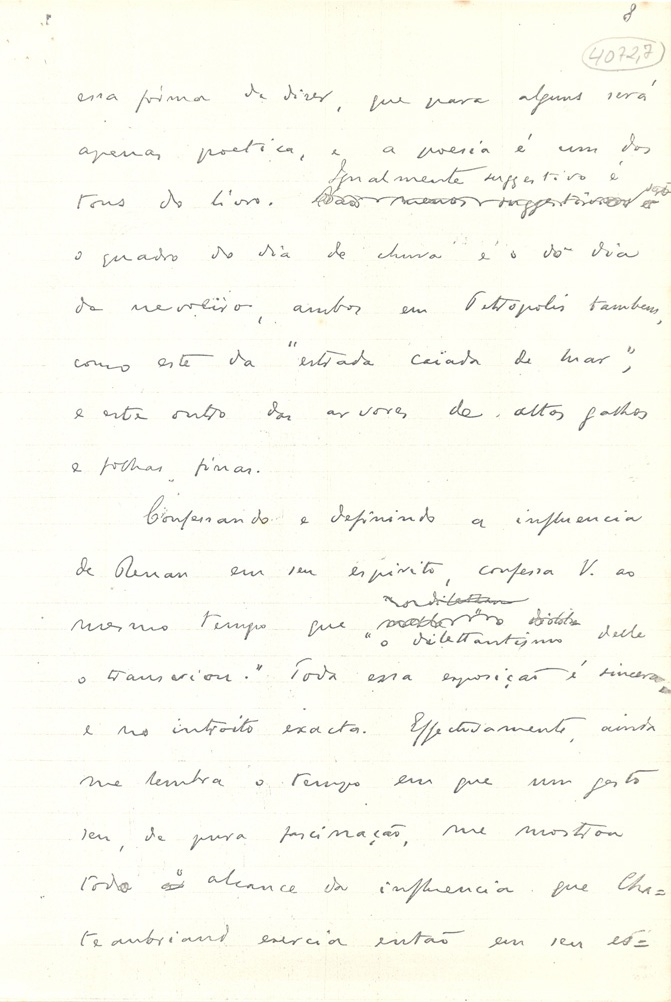 8
4072,7
essa fórma de dizer, que para alguns será
apenas poetica, e a poesia é um dos
Igualmente suggestivo é
tons do livro. Não menos suggestivo é
o quadro do dia de chuva e o do dia
de nevoeiro, ambos em Petropolis tambem,
como este da "estrada caiada de luar",
e este outro das arvores de altos galhos
e folhas finas.
Confessando e definindo a influencia
de Renan em seu espirito, confessa V. ao
mesmo tempo que
"o dilettantismo delle
o transviou." Toda essa exposição é sincera,
e no introito exacta. Effectivamente, ainda
me lembra o tempo em que um gesto
seu, de pura fascinação, me mostrou
todo o alcance da influencia que Cha=
teaubriand exercia então em seu es=